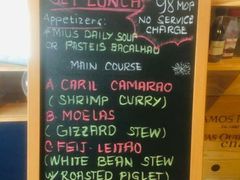 SET LUNCH
98 MOP
NO SERVICE
CHARGE
Appetizers:
FMIUS DAILY SOUP
OR PASTEIS BACALHAO
MAIN COURSE
A CARIL CAMARAO
(SHRIMP CURRY)
B. MOELAS
(GIZZARD STEW)
C FEIJ-LEITAO
(WHITE BEAN STEW
W/ ROASTED PIGLET)